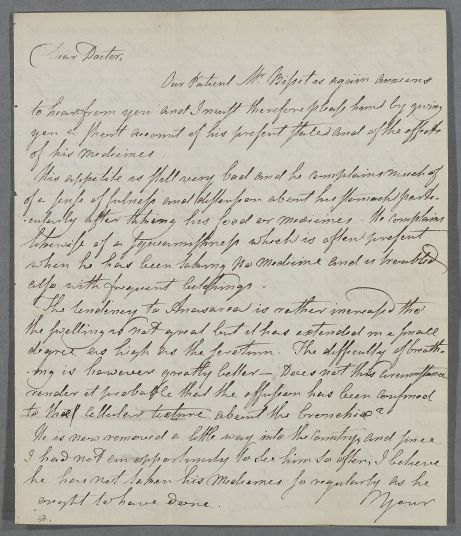 Dear Doctor,
Our Patient Mr. Bisset is again anxious
to hear from you and I must therefore please him by giving
you a short account of his present state and of the effects
of his medicines.
His appetite is still very bad and he complains much of
of a sense of fulness and distension about his stomach parti-
-cularly after taking his food or medicines. He complains
likewise of a squeamishness which is often present
when he has been taking no medicine and is troubled
also with frequent belchings.
The tendency to Anasarca is rather increased tho'
the swelling is not great but it has extended in a small
degree as high as the scrotum. The difficulty of breath-
-ing is however greatly better — Does not this circumstance
render it probable that the effusion has been confined
to the cellular texture about the bronchiæ?
He is now removed a little way into the Country, and since
I had not an opportunity to see him so often, I believe
he has not taken his Medicines so regularly as he
ought to have done.
Your